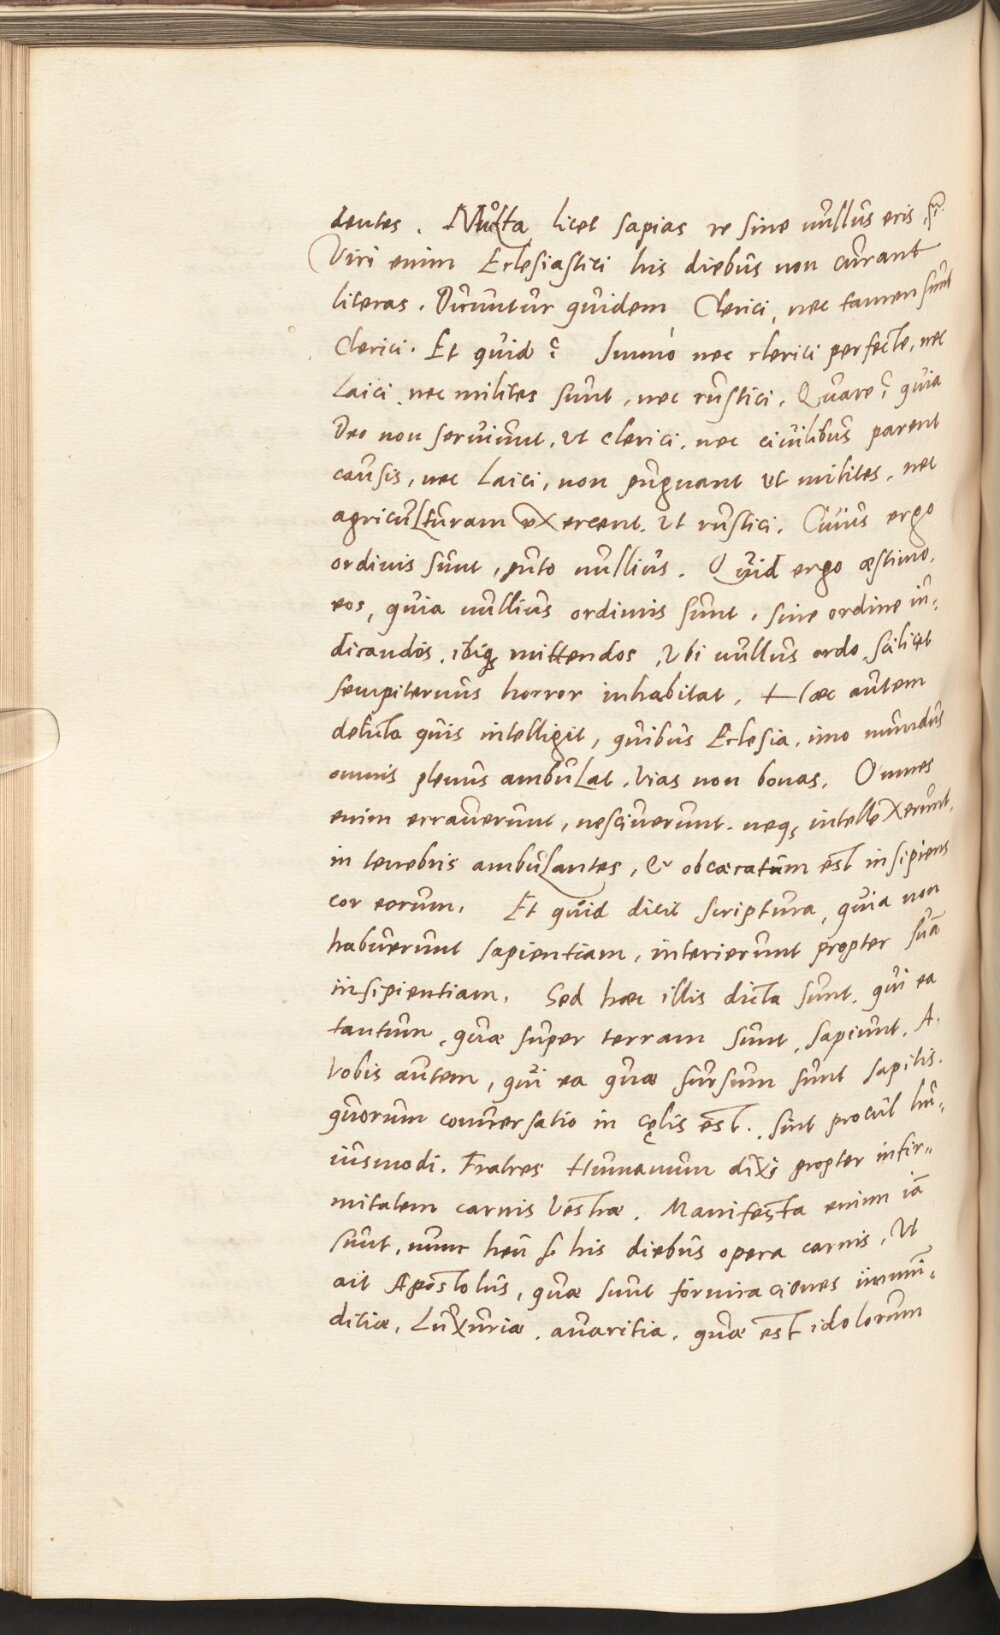 dentes. Multa licet sapias re sine nullus eris.
Viri enim Eclesiastici his diebus non curant
literas. Dicuntur quidem Clerici, nec tamen sunt
Clerici. Et quid? Immó nec clerici perfecte, nec
Laici, nec milites sunt, nec rustici. Quare? quia
Deo non serviunt, ut clerici, nec civilibus parent
causis, nec Laici, non pugnant ut milites, nec
agriculturam exercent, ut rustici. Cuius ergo
ordinis sunt, puto nullius. Quid ergo æstimo.
eos, quia nullius ordinis sunt, sine ordine iu,,
dicandos, ibiq; mittendos, Ubi nullus ordo, scilicet
sempiternus horror inhabitat. Hæc autem
delicta quis intelligit, quibus Eclesia, imo mundus
omnis plenus ambulat, Vias non bonas. Omnes
enim erraverunt, nesciverunt, neq; intellexerunt,
in tenebris ambulantes, & obcæcatum est insipiens
cor eorum. Et quid dicit scriptura, quia non
habuerunt sapientiam, interierunt propter suã
insipientiam. Sed hæc illis dicta sunt, qui ea
tantum, quæ super terram sunt, sapiunt. A.
Vobis autem, qui ea quæ sursum sunt sapitis.
quorum conversatio in cęlis est, sint procul hu,,
iusmodi. Fratres Humanum dixi propter infir,,
mitatem carnis Vestræ. Manifesta enim iã
sunt, nunc heu his diebus opera carnis, Ut
ait Apostolus, quæ sunt fornicaciones immũ,,
diciæ, Luxuriæ, avaritia, quæ est idolorum